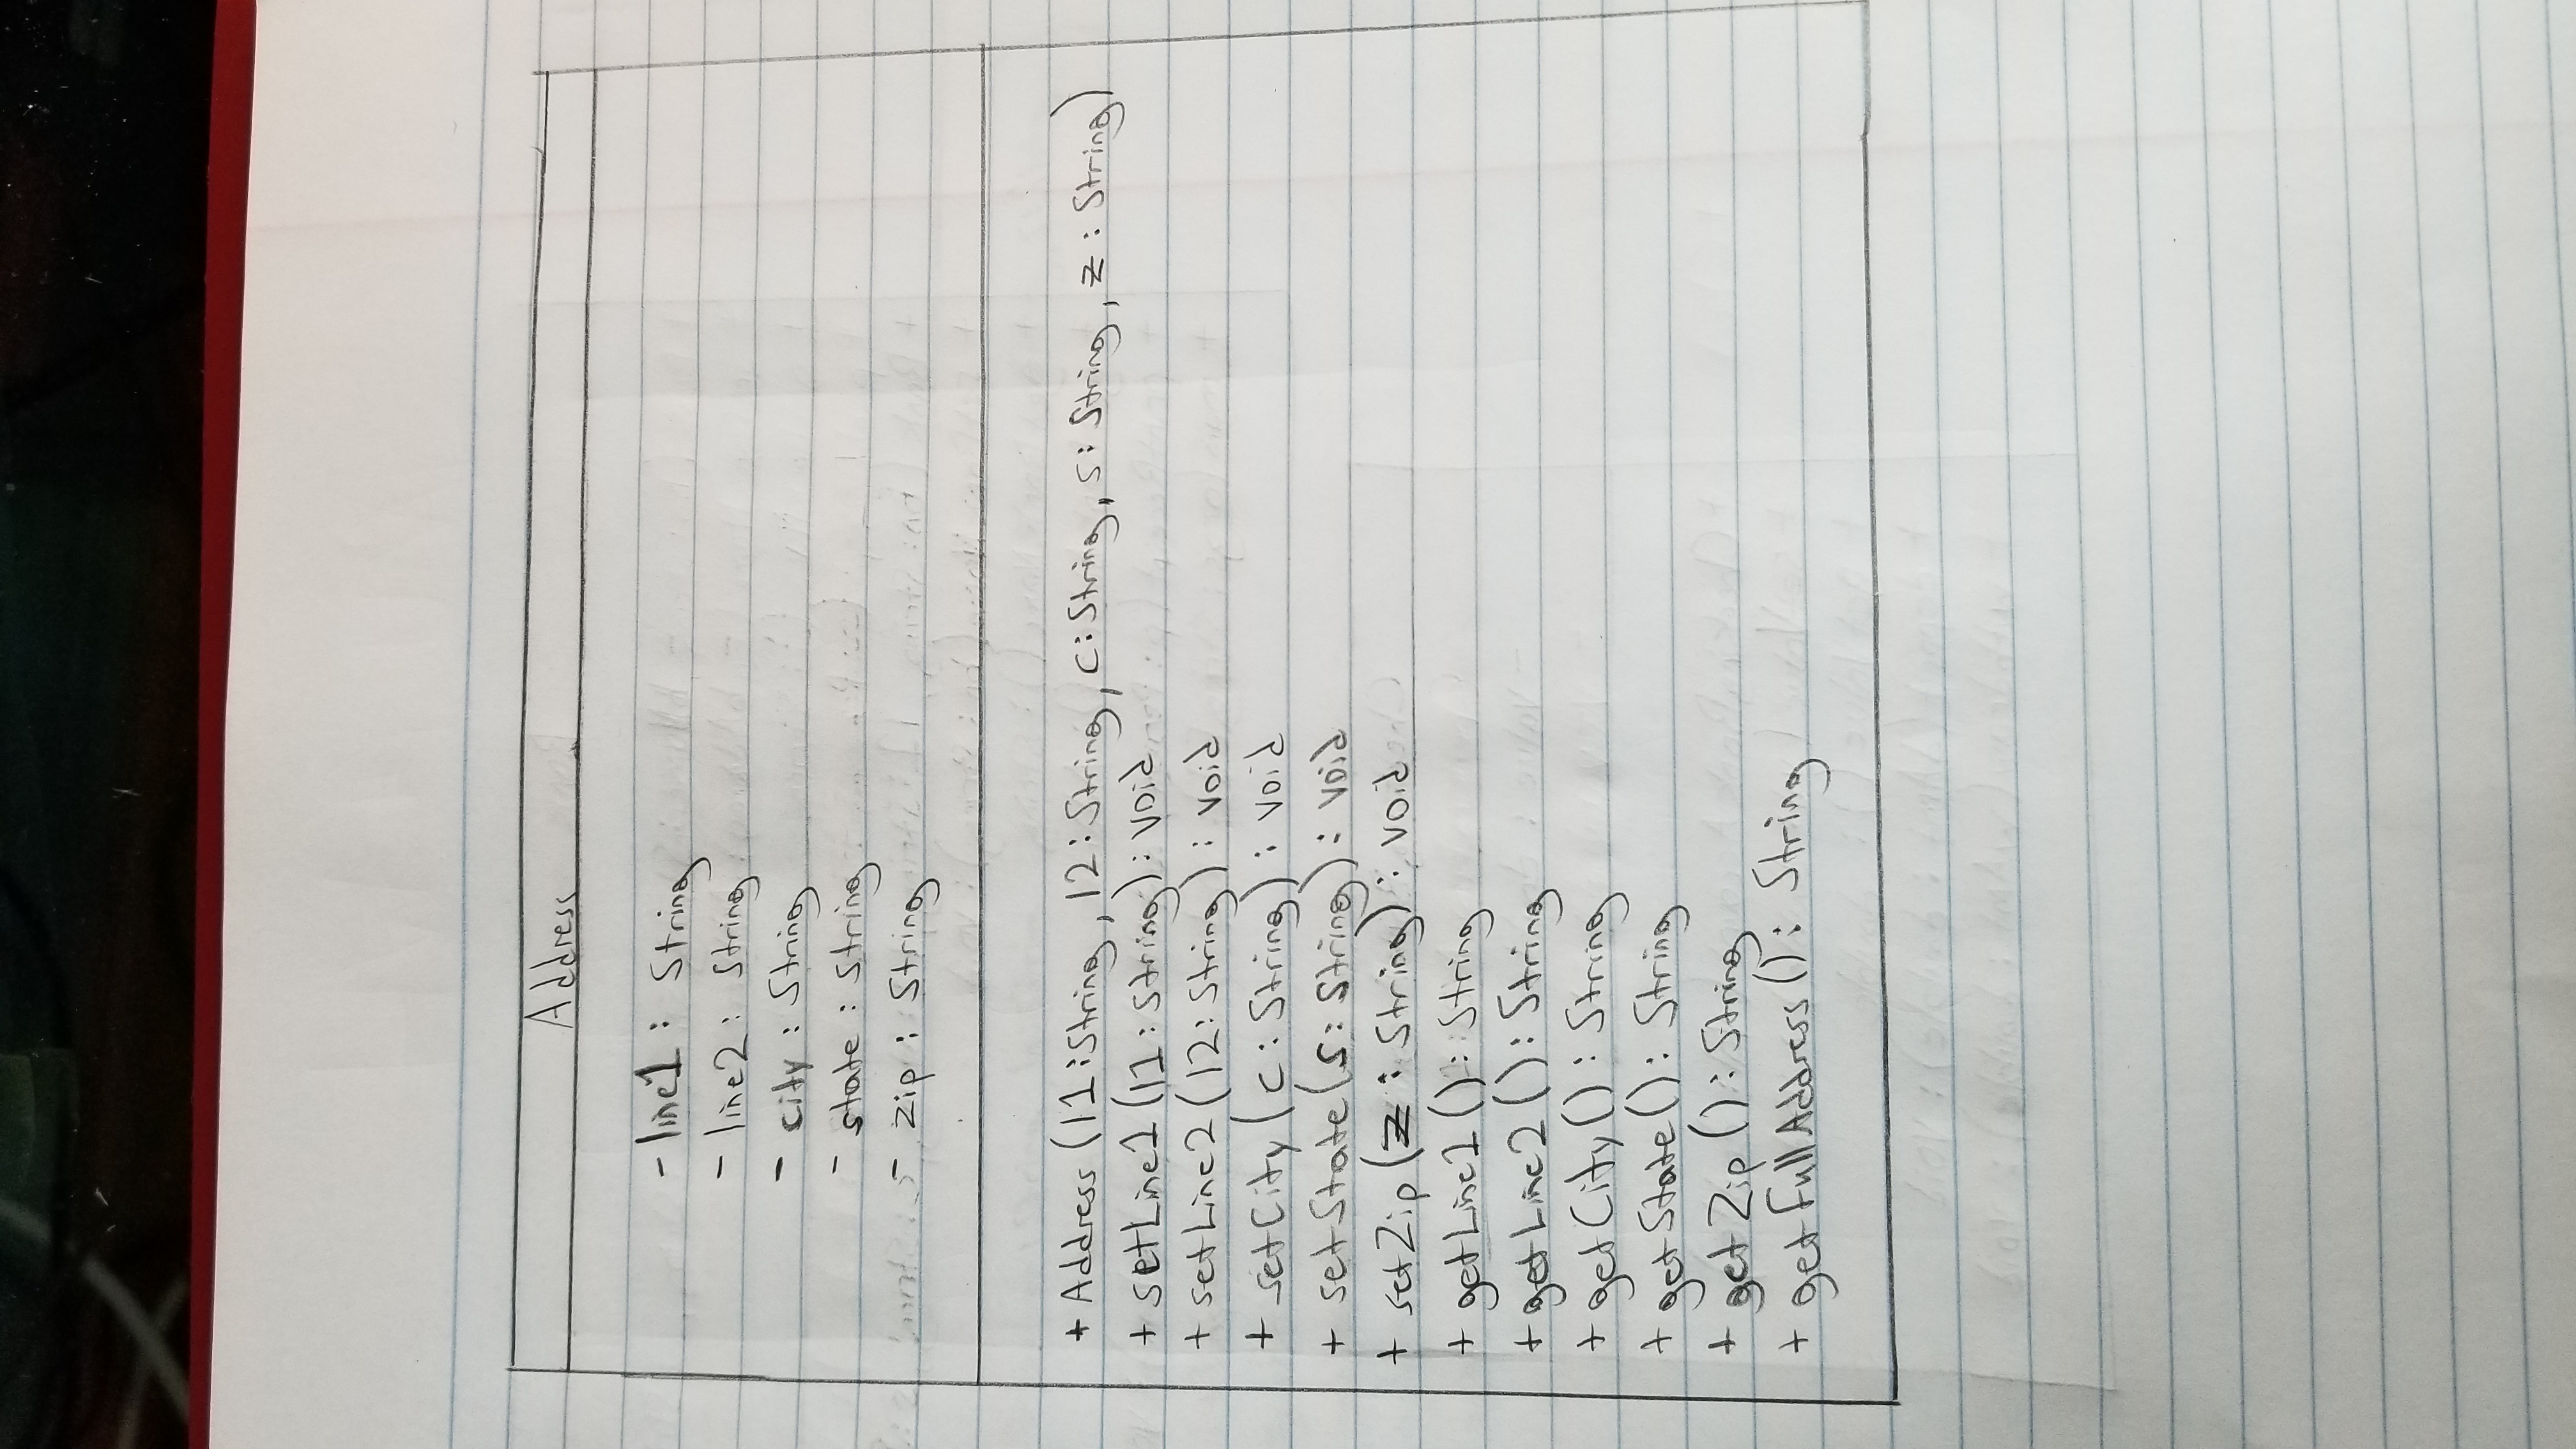 Address
- line1 : String
- line2 : String
- city : String
- state : String
- zip : String
+ Address (l1 : String, l2 : String, c : String, s : String, z : String)
+ setLine1 (l1 : String) : void
+ setLine2 (l2 : String) : void
+ setCity (c : String) : void
+ setState (s : String) : void
+ setZip (z : String) : void
+ getLine1 () : String
+ getLine2 () : String
+ getCity () : String
+ getState () : String
+ getZip () : String
+ getFullAddress () : String